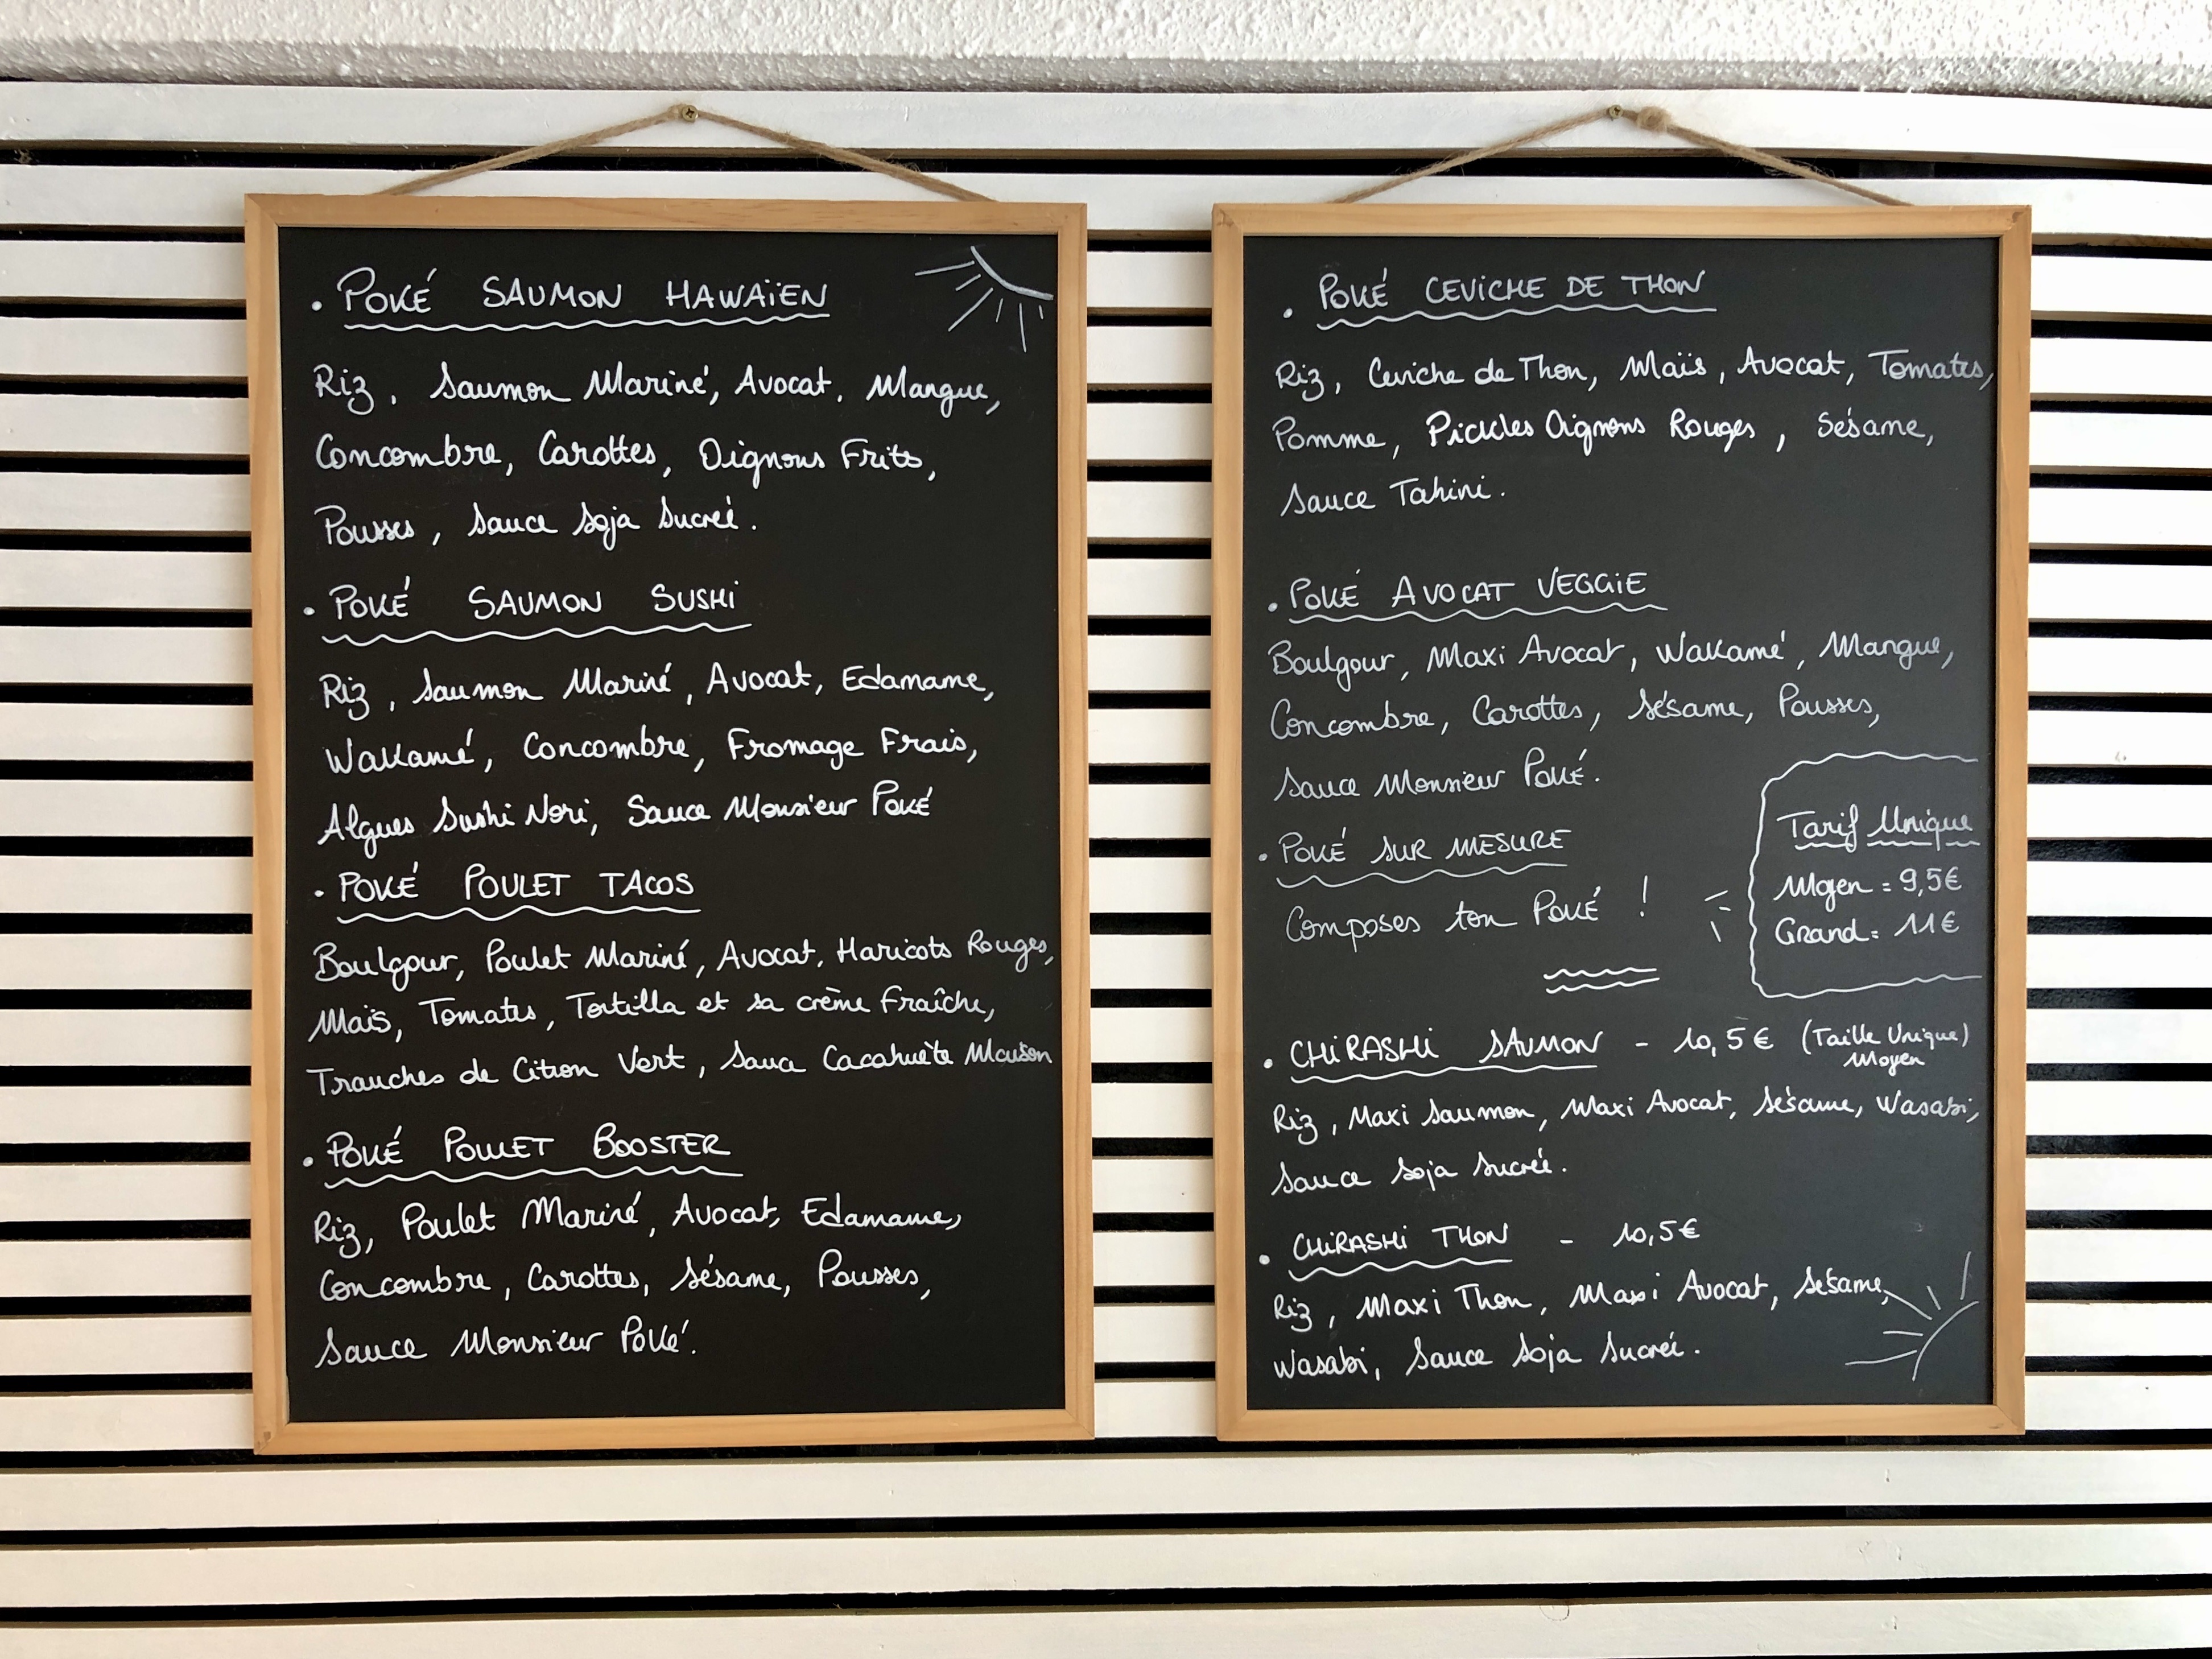 . POKÉ SAUMON HAWAÏEN
Riz, Saumon Mariné, Avocat, Mangue,
Concombre, Carottes, Oignons Frits,
Pousses, Sauce Soja Sucrée.
. POKÉ SAUMON SUSHI
Riz, Saumon Mariné, Avocat, Edamame,
Wakamé, Concombre, Fromage Frais,
Algues Sushi Nori, Sauce Monsieur Poké
. POKÉ POULET TACOS
Boulgour, Poulet Mariné, Avocat, Haricots Rouges,
Maïs, Tomates, Tortilla et sa crème Fraîche,
Tranches de Citron Vert, Sauce Cacahuète Maison
. POKÉ POULET BOOSTER
Riz, Poulet Mariné, Avocat, Edamame,
Concombre, Carottes, Sésame, Pousses,
Sauce Monsieur Poké.
. POKÉ CEVICHE DE THON
Riz, Ceviche de Thon, Maïs, Avocat, Tomates,
Pomme, Pickles Oignons Rouges, Sésame,
Sauce Tahini.
. POKÉ AVOCAT VEGGIE
Boulgour, Maxi Avocat, Wakamé, Mangue,
Concombre, Carottes, Sésame, Pousses,
Sauce Monsieur Poké.
. POKÉ SUR MESURE
Composes ton Poké !
Tarif Unique
Moyen = 9,5€
Grand = 11€
. CHIRASHI SAUMON - 10,5€ (Taille Unique)
Moyen
Riz, Maxi Saumon, Maxi Avocat, Sésame, Wasabi,
Sauce Soja Sucrée.
. CHIRASHI THON - 10,5€
Riz, Maxi Thon, Maxi Avocat, Sésame,
Wasabi, Sauce Soja Sucrée.